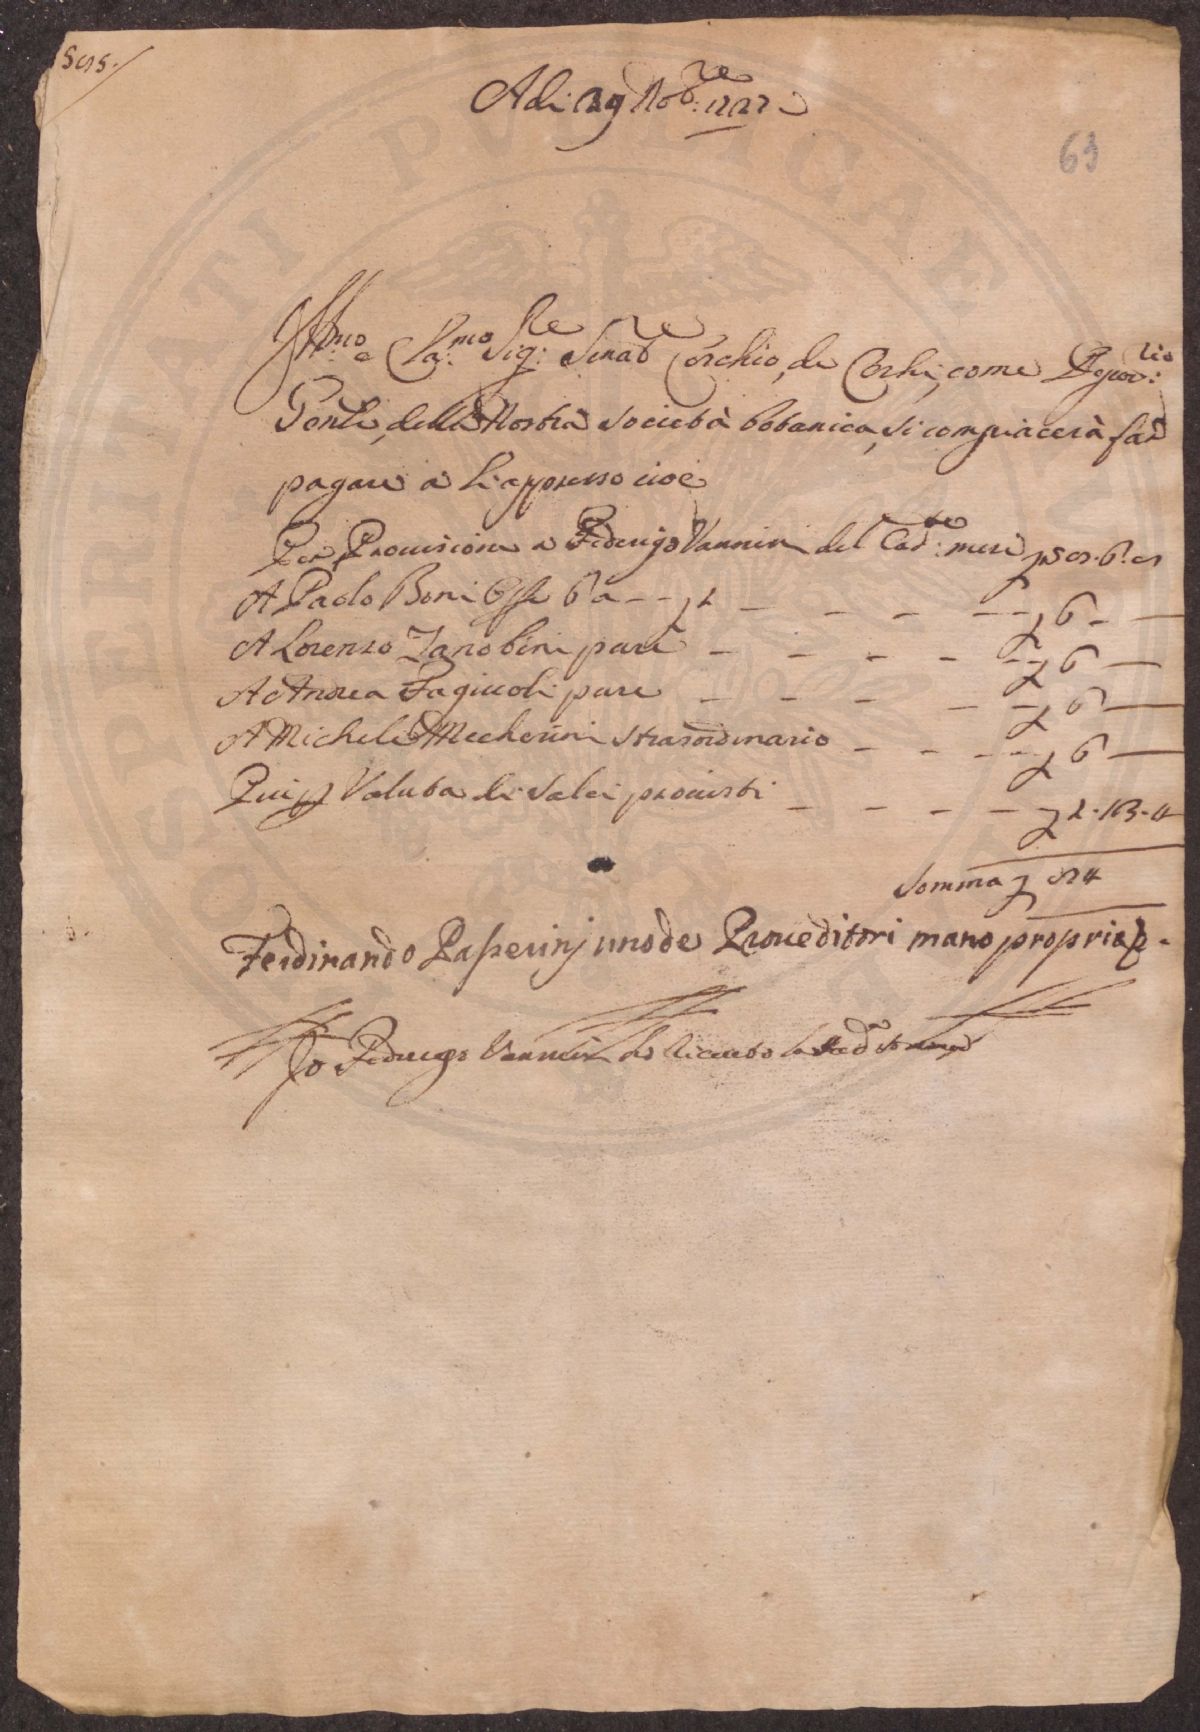 Adi 29 Nobre: 1727
63
Illmo: e Cla:mo Sig:re Senatre Cerchio, de Cerchi, come Deposi:rio
Gente, della Nostra Società botanica, si compiacerà far
pagare a li appresso cioè
Per Provisione a Federigo Vannini del Cad:te mese
A Paolo Boni 6 6
A Lorenzo Zanobini pure 6
A Andrea Fagiuoli pure 6
A Michele Mecherini straordinario 6
Valuta di Salci provisti
Somma
Ferdinando Passerinj uno de Proveditori mano propria
Io Federigo Vannini ho riceuto la